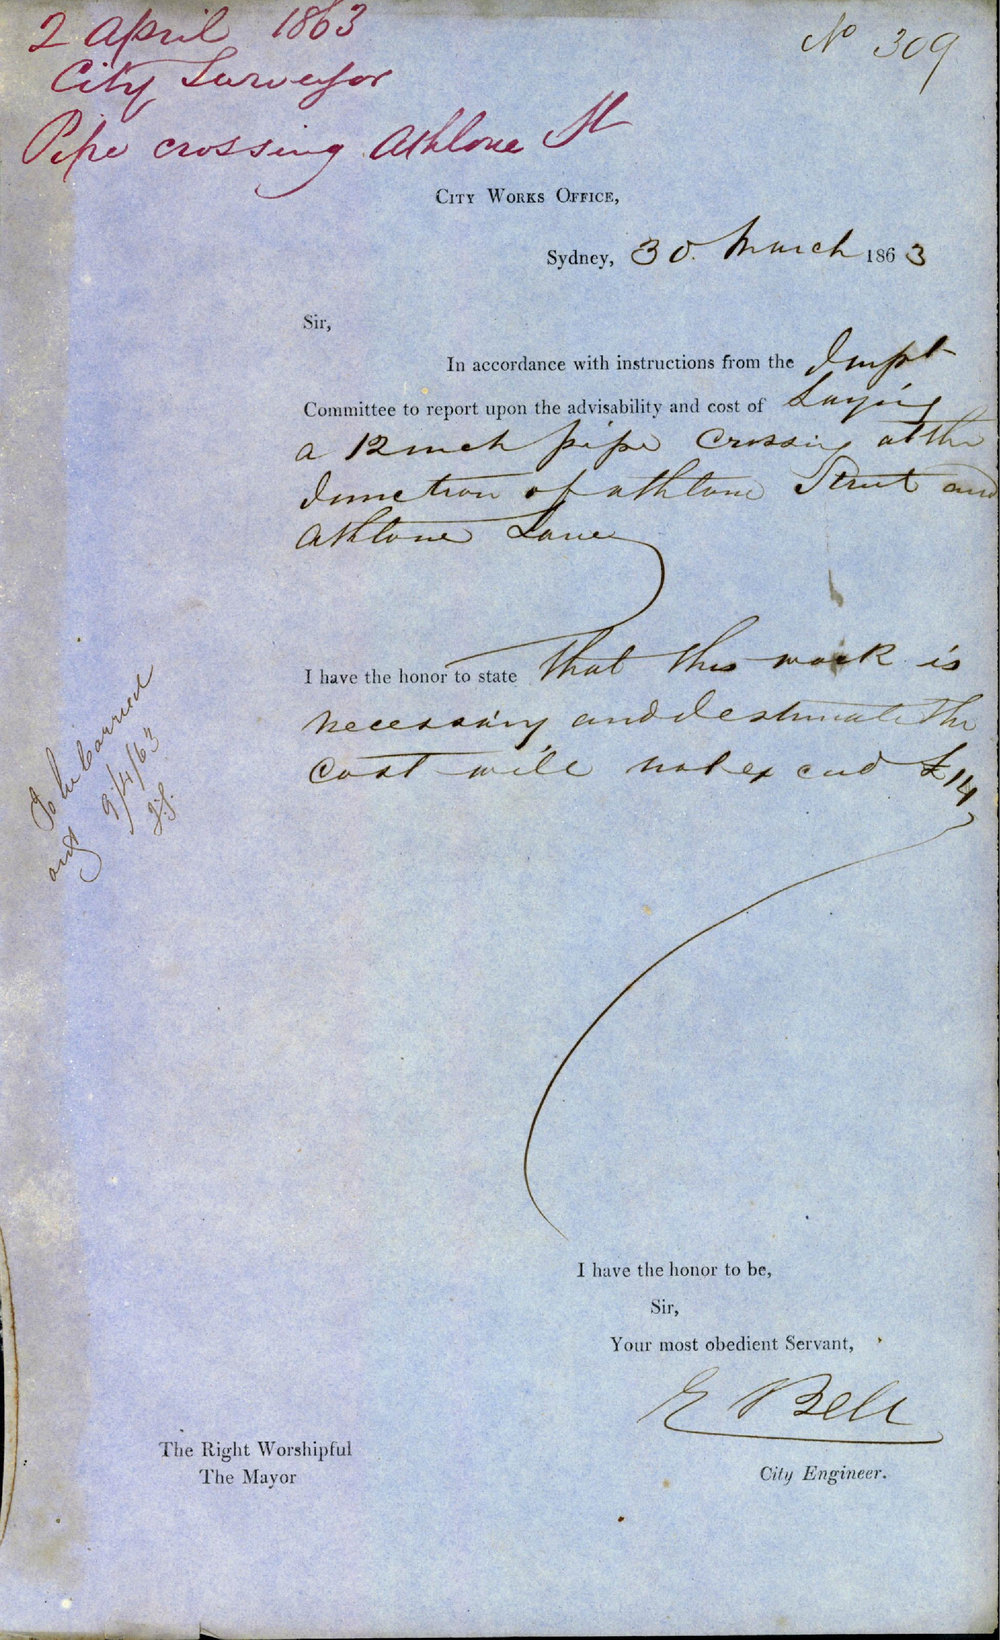 2 April 1863
City Surveyor
Pipe crossing Athlone St
No 309
City Works Office,
Sydney, 30. March 1863
Sir,
In accordance with instructions from the Impt
Committee to report upon the advisability and cost of Laying
a 12 inch pipe Crossing at the
Junction of Athlone Street and
Athlone Lane
I have the honor to state that this work is
necessary and I estimate the
cost will not exceed £14
To be Carried
out
9/4/63
I have the honor to be,
Sir,
Your most obedient Servant,
E Bell
City Engineer.
The Right Worshipful
The Mayor